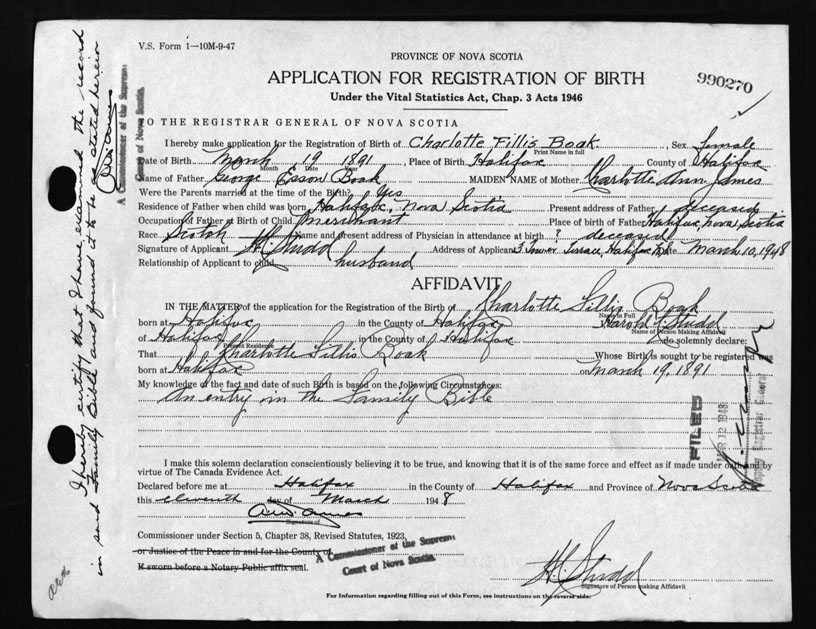 V.S. Form 1—10M-9-47
PROVINCE OF NOVA SCOTIA
APPLICATION FOR REGISTRATION OF BIRTH
990270
Under the Vital Statistics Act, Chap. 3 Acts 1946
TO THE REGISTRAR GENERAL OF NOVA SCOTIA
I hereby make application for the Registration of Birth of Charlotte Fillis Boak, Sex female
Print Name in full
Date of Birth March 19 1891, Place of Birth Halifax County of Halifax
Month Date Year
Name of Father George Esson Boak MAIDEN NAME of Mother Charlotte Ann James
Were the Parents married at the time of the Birth? Yes
Residence of Father when child was born Halifax, Nova Scotia Present address of Father deceased
Occupation of Father at Birth of Child Merchant Place of birth of Father Halifax, Nova Scotia
Race Scotch Name and present address of Physician in attendance at birth? deceased
Signature of Applicant H. Studd Address of Applicant 3 Tower Terrace, Halifax N.S. Date March 10, 1948
Relationship of Applicant to child husband
AFFIDAVIT
IN THE MATTER of the application for the Registration of the Birth of Charlotte Fillis Boak
Name in Full
born at Halifax in the County of Halifax Harold Studd
Name of Person Making Affidavit
of Halifax in the County of Halifax do solemnly declare:
Present Residence
That Charlotte Fillis Boak Whose Birth is sought to be registered was
born at Halifax on March 19, 1891
My knowledge of the fact and date of such Birth is based on the following Circumstances:
An entry in the Family Bible
I make this solemn declaration conscientiously believing it to be true, and knowing that it is of the same force and effect as if made under oath and by
virtue of The Canada Evidence Act.
Declared before me at Halifax in the County of Halifax and Province of Nova Scotia
this eleventh day of March 1948
Signature of
Commissioner under Section 5, Chapter 38, Revised Statutes, 1923,
or Justice of the Peace in and for the County of
If sworn before a Notary Public affix seal.
A Commissioner of the Supreme
Court of Nova Scotia.
H. Studd
Signature of Person making Affidavit
For Information regarding filling out of this Form, see instructions on the reverse side.
I hereby certify that I have examined the record
in said Family Bible and found it to be as stated herein
A Commissioner of the Supreme
Court of Nova Scotia.
FILED
MAR 12 1948
Registrar General